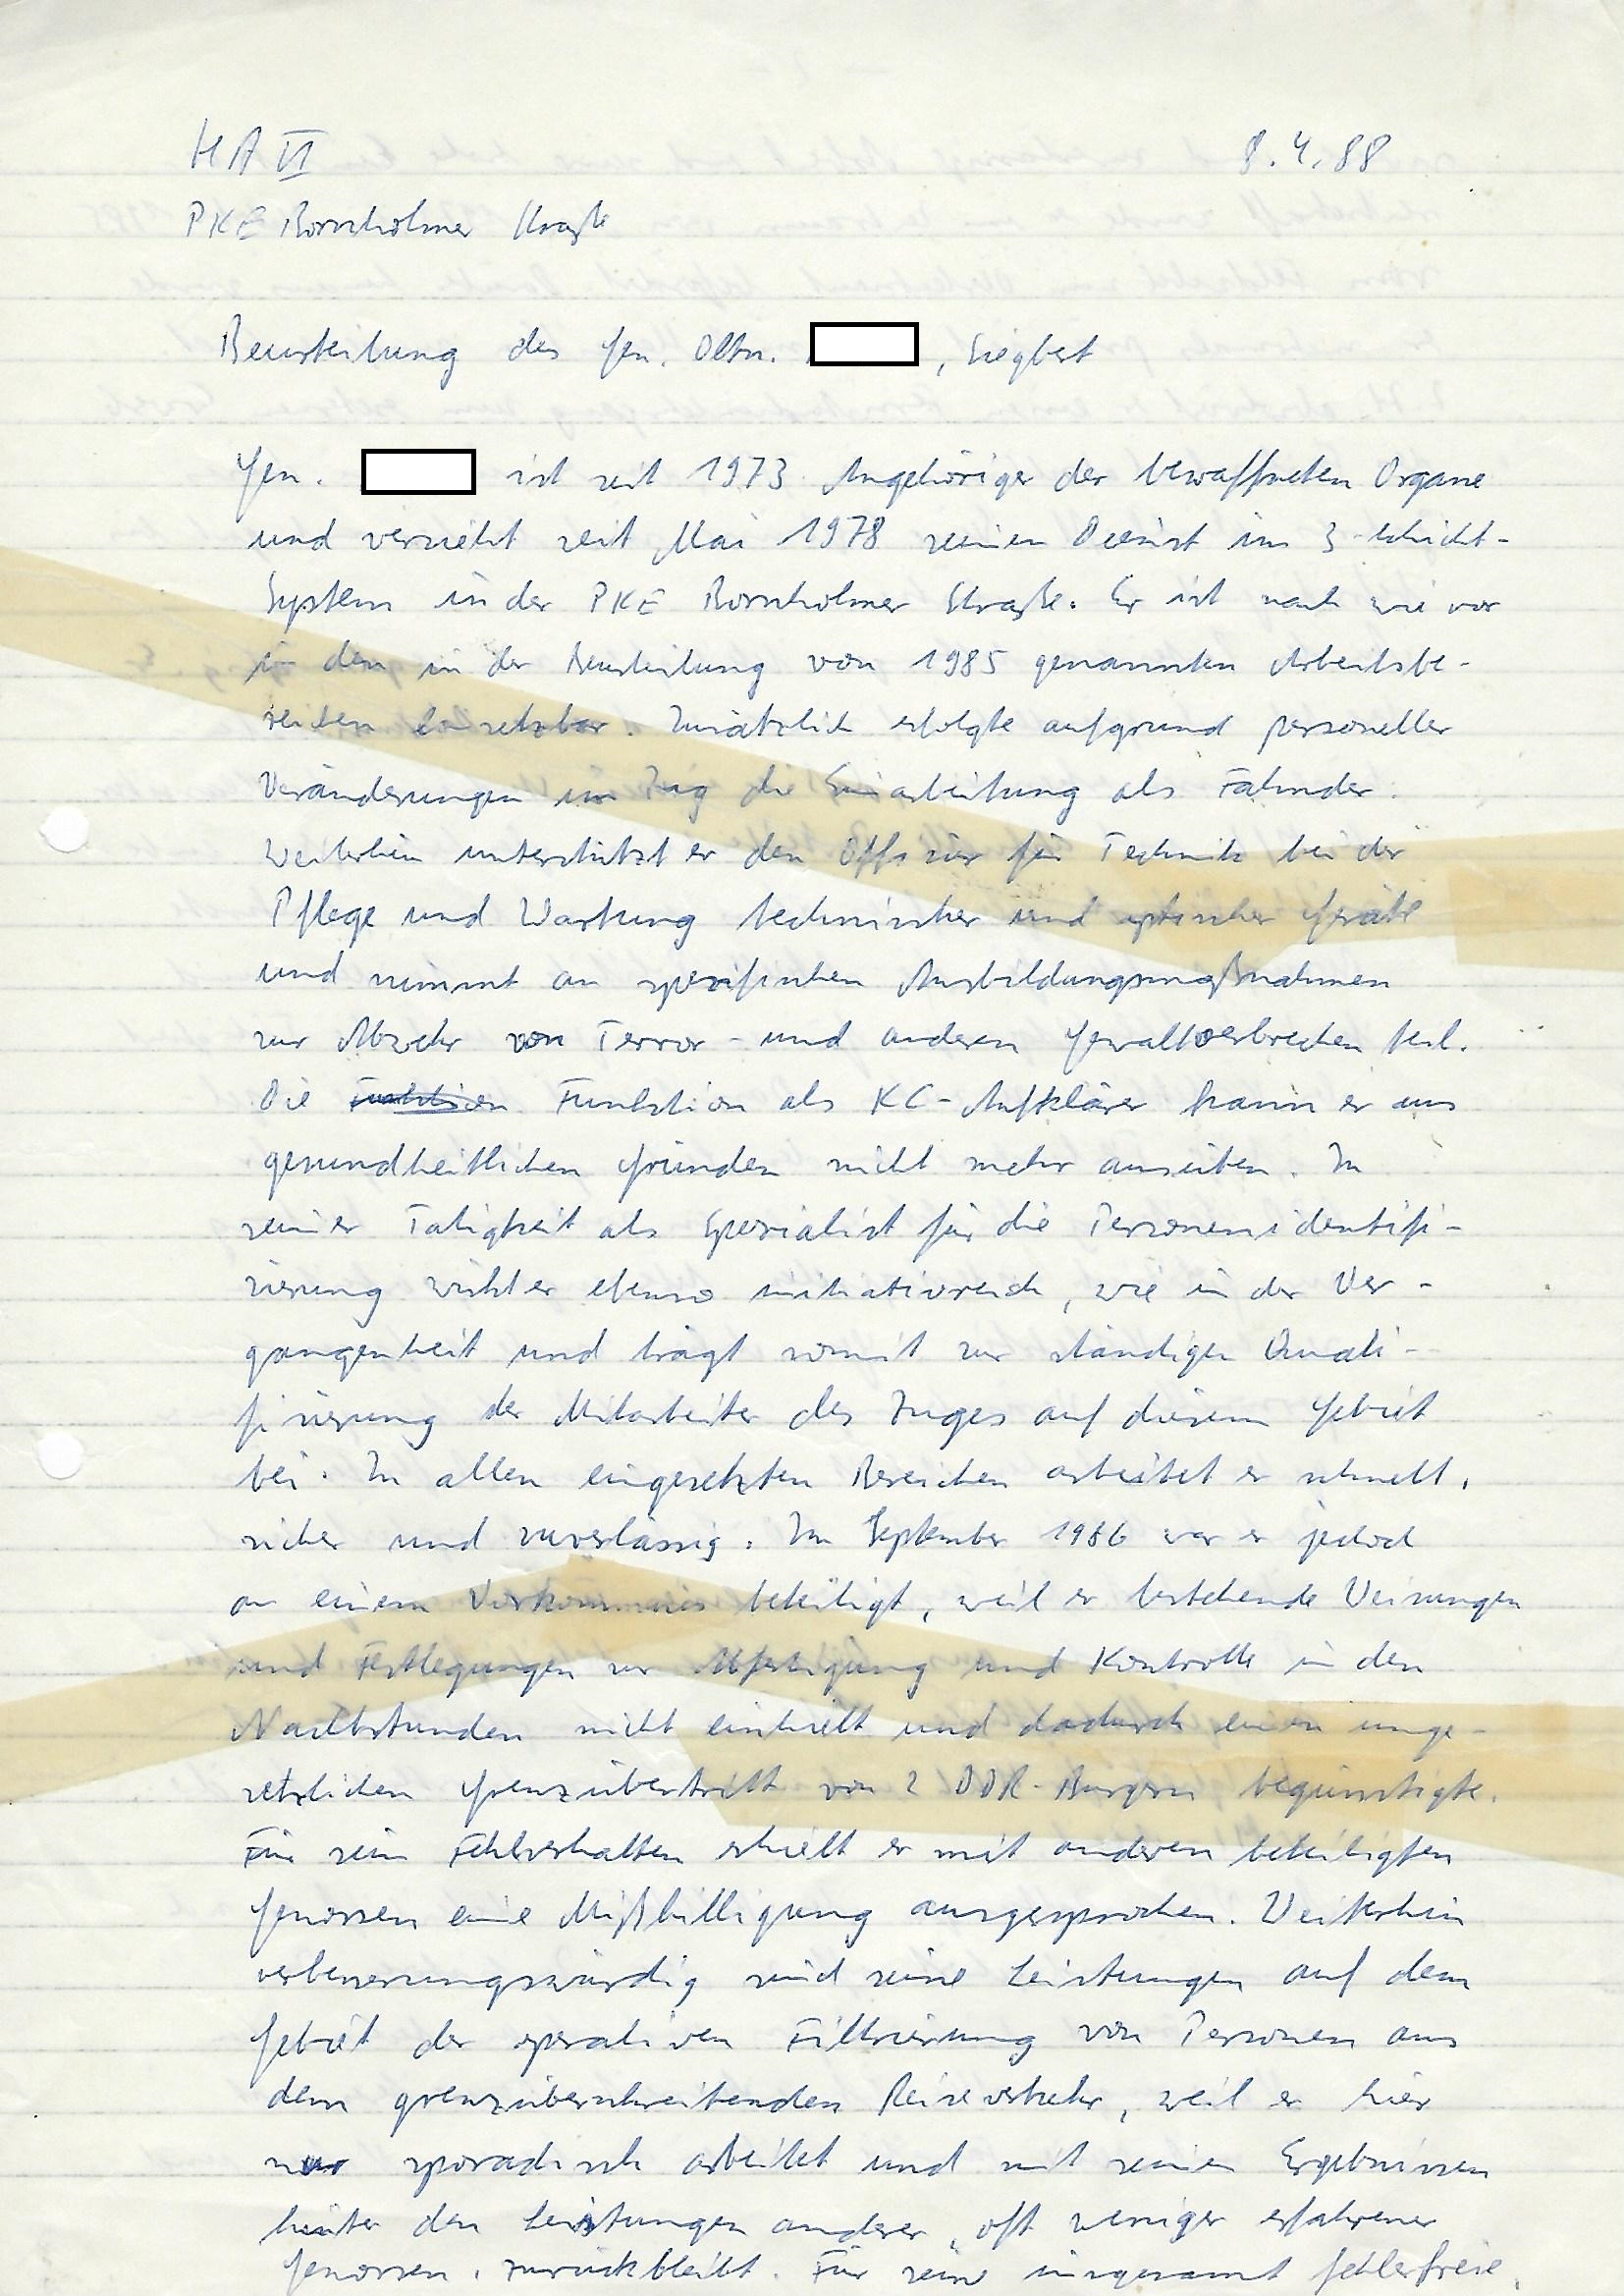 HA VI 8.4.88
PKE Bornholmer Straße
Beurteilung des Gen. Oltn. , Siegbert
Gen. ist seit 1973 Angehöriger der bewaffneten Organe
und versieht seit Mai 1978 seinen Dienst im 3-Schicht-
System in der PKE Bornholmer Straße. Er ist nach wie vor
in den in der Beurteilung von 1985 genannten Arbeitsbe-
reichen einsetzbar. Zusätzlich erfolgte aufgrund personeller
Veränderungen im Zug die Einarbeitung als Fahnder.
Weiterhin unterstützt er den Offizier für Technik bei der
Pflege und Wartung technischer und optischer Geräte
und nimmt an spezifischen Ausbildungsmaßnahmen
zur Abwehr von Terror- und anderen Gewaltverbrechen teil.
Die Funktion Funktion als KC-Aufklärer kann er aus
gesundheitlichen Gründen nicht mehr ausüben. In
seiner Tätigkeit als Spezialist für die Personenidentifi-
zierung wirkt er ebenso initiativreich, wie in der Ver-
gangenheit und trägt somit zur ständigen Quali-
fizierung der Mitarbeiter des Zuges auf diesem Gebiet
bei. In allen eingesetzten Bereichen arbeitet er schnell,
sicher und zuverlässig. Im September 1986 war er jedoch
an einem Vorkommnis beteiligt, weil er bestehende Weisungen
und Festlegungen zur Abfertigung und Kontrolle in den
Nachtstunden nicht einhielt und dadurch einen unge-
setzlichen Grenzübertritt von 2 DDR-Bürgern begünstigte.
Für sein Fehlverhalten erhielt er mit anderen beteiligten
Genossen eine Mißbilligung ausgesprochen. Weiterhin
verbesserungswürdig sind seine Leistungen auf dem
Gebiet der operativen Filtrierung von Personen aus
dem grenzüberschreitenden Reiseverkehr, weil er hier
nur sporadisch arbeitet und mit seinen Ergebnissen
hinter den Leistungen anderer, oft weniger erfahrener
Genossen, zurückbleibt. Für seine insgesamt fehlerfreie,